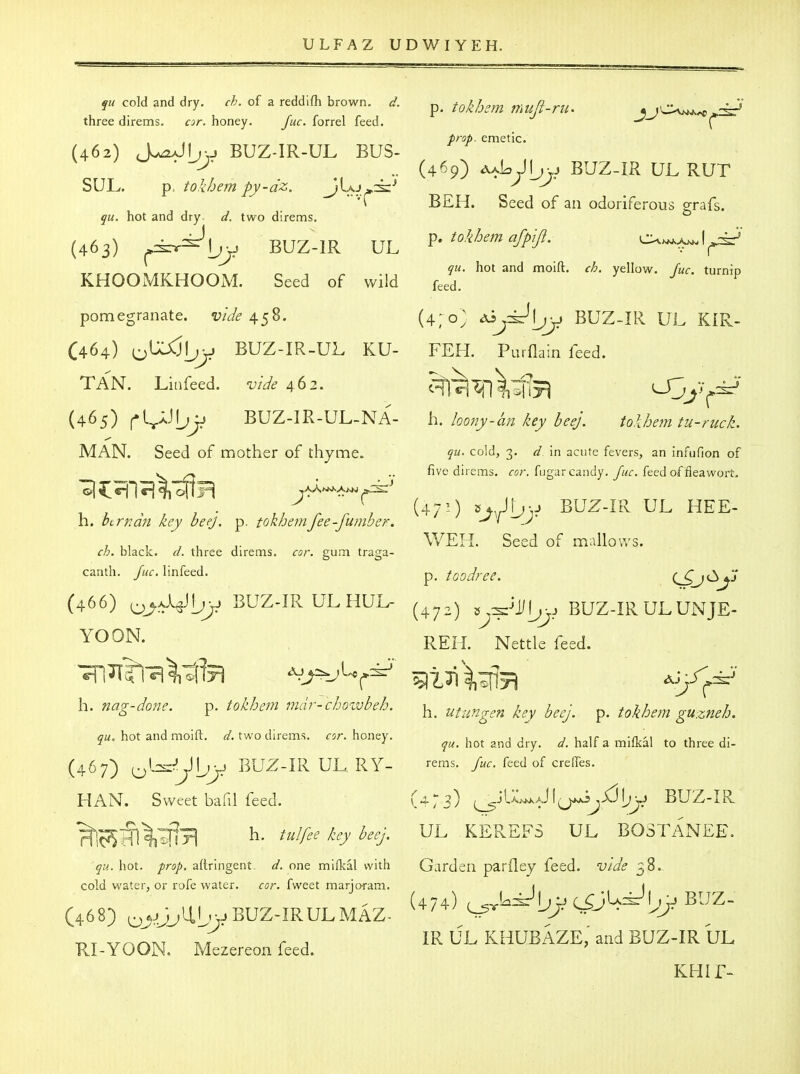 ULFAZ UDWIYEH.
qu cold and dry. ch. of a reddiſh brown. d.
three direms. cor. honey. ſuc. ſorrel ſeed.
(462) بزرالبصل BUZ-IR-UL BUS-
SUL. p. tokhem py-āz. تخم پیاز
qu. hot and dry. d. two direms.
(463) بزرالخمخم BUZ-IR UL
KHOOMKHOOM. Seed of wild
pomegranate. vide 458.
(464) بزرالكتان BUZ-IR-UL KU-
TAN. Linſeed. vide 462.
(465) بزرالنمام BUZ-IR-UL-NA-
MAN. Seed of mother of thyme.
تخم سیسنبر
h. birnān key beej. p. tokhem ſee-ſumber.
ch. black. d. three direms. cor. gum traga-
canth. ſuc. linſeed.
(466) بزرالهليون BUZ-IR UL HUL-
YOON.
تخم مارچوبه
h. nag-done. p. tokhem mār-chowbeh.
qu. hot and moiſt. d. two direms. cor. honey.
(467) بزرالريحان BUZ-IR UL RY-
HAN. Sweet baſil ſeed.
h. tulſee key beej.
qu. hot. prop. aſtringent. d. one miſkál with
cold water, or roſe water. cor. ſweet marjoram.
(468) بزرالمازريون BUZ-IR UL MÁZ-
RI-YOON. Mezereon ſeed.
p. tokhem muſt-ru. تخم مست رو
prop. emetic.
(469) بزرالرطبه BUZ-IR UL RUT
BEH. Seed of an odoriferous graſs.
p. tokhem aſpiſt. تخم اسپست
qu. hot and moiſt. ch. yellow. ſuc. turnip
ſeed.
(470) بزرالخرفه BUZ-IR UL KIR-
FEH. Purſlain ſeed.
تخم تورك
h. loony-ān key beej. tokhem tu-ruck.
qu. cold, 3. d in acute fevers, an infuſion of
five direms. cor. ſugar candy. ſuc. ſeed of fleawort.
(471) BUZ-IR UL HEE-
WEH. Seed of mallows.
p. toodree. تودری
(472) بزرالانجره BUZ-IR UL UNJE-
REH. Nettle ſeed.
تخم گزنه
h. utungen key beej. p. tokhem guzneh.
qu. hot and dry. d. half a miſkál to three di-
rems. ſuc. ſeed of creſſes.
(473) بزرالكرفس البستانی BUZ-IR
UL KEREFS UL BOSTĀNEE.
Garden parſley ſeed. vide 38.
(474) BUZ-
IR UL KHUBÁZE, and BUZ-IR UL
KHIT-